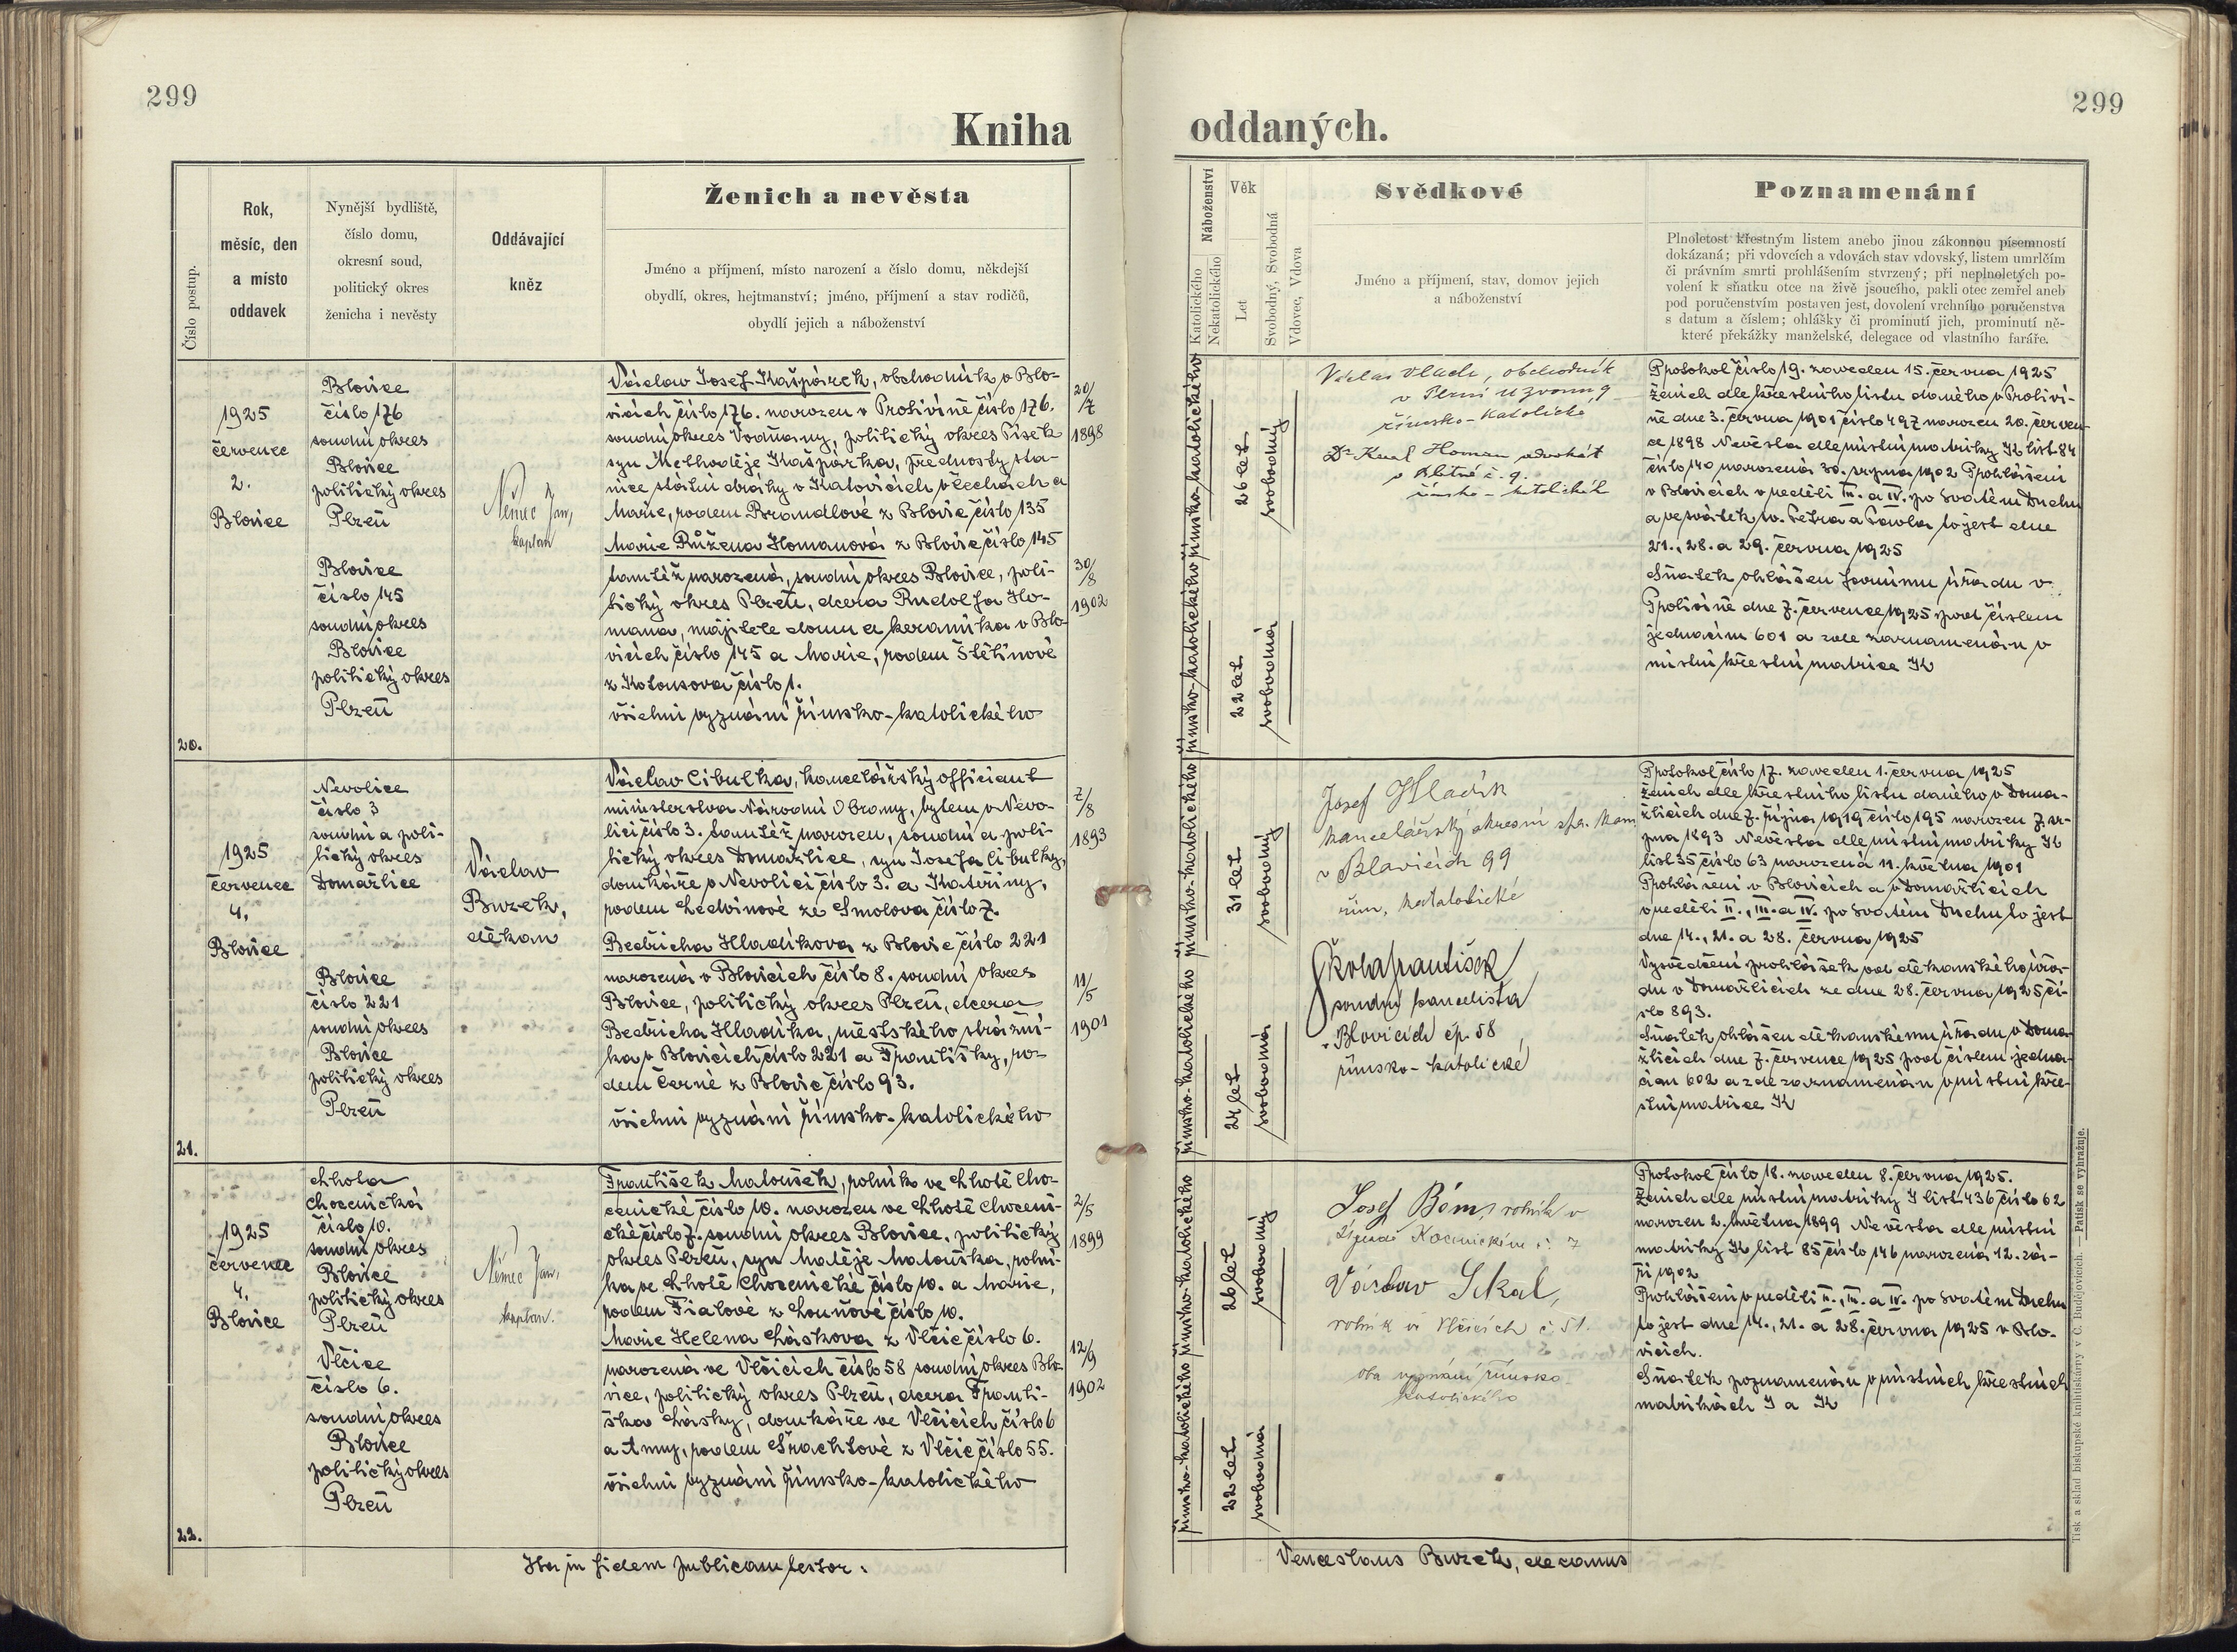 299
299
Kniha
oddaných.
Číslo postup.
Rok,
měsíc, den
a místo
oddavek
Nynější bydliště,
číslo domu,
okresní soud,
politický okres
ženicha i nevěsty
Oddávající
kněz
Ženich a nevěsta
Jméno a příjmení, místo narození a číslo domu, někdejší
obydlí, okres, hejtmanství; jméno, příjmení a stav rodičů,
obydlí jejich a náboženství
Náboženství
Katolického
Nekatolického
Věk
Let
Svobodný, Svobodná
Vdovec, Vdova
Svědkové
Jméno a příjmení, stav, domov jejich
a náboženství
Poznamenání
Plnoletost křestným listem anebo jinou zákonnou písemností
dokázaná; při vdovcích a vdovách stav vdovský, listem umrlčím
či právním smrti prohlášením stvrzený; při neplnoletých po-
volení k sňatku otce na živě jsoucího, pakli otec zemřel aneb
pod poručenstvím postaven jest, dovolení vrchního poručenstva
s datum a číslem; ohlášky či prominutí jich, prominutí ně-
které překážky manželské, delegace od vlastního faráře.
20.
1925
července
2.
Blovice
Blovice
číslo 176
soudní okres
Blovice
politický okres
Plzeň
Blovice
číslo 145
soudní okres
Blovice
politický okres
Plzeň
Němec Jan,
kaplan
Václav Josef Kašpárek, obchodník v Blo-
vicích číslo 176. narozen v Protivíně číslo 176.
soudní okres Vodňany, politický okres Písek
syn Methoděje Kašpárka, přednosty sta-
nice státní dráhy v Katovicích v Čechách a
Marie, rodem Brandlové z Blovic číslo 135
Marie Růžena Homanová z Blovic číslo 145
tamtéž narozená, soudní okres Blovice, poli-
tický okres Plzeň, dcera Rudolfa Ho-
mana, majitele domu a keramika v Blo-
vicích číslo 145 a Marie, rodem Štětinové
z Kotousova číslo 1.
všichni vyznání římsko-katolického
20/7
1898
30/8
1902
římsko-katolického
římsko-katolického
26 let
svobodný
22 let
svobodná
Václav Vlach, obchodník
v Plzni u Zvonu, 9
římsko-katolické
Dr Karel Homan advokát
v č. 9.
římsko-katolické
Protokol číslo 19. zaveden 15. června 1925
Ženich dle křestního listu daného v Protiví-
ně dne 3. června 1901 číslo 497 narozen 20. červen-
ce 1898 Nevěsta dle místní matriky K list 84
číslo 140 narozená 30. srpna 1902 Prohlášení
v Blovicích v neděli III. a IV. po Svatém Duchu
a ve svátek sv. Petra a Pavla to jest dne
21., 28. a 29. června 1925
Sňatek ohlášen farnímu úřadu v
Protivíně dne 7. července 1925 pod číslem
jednacím 601 a zde zaznamenán v
místní křestní matrice K
21.
1925
července
4.
Blovice
Nevolice
číslo 3
soudní a poli-
tický okres
Domažlice
Blovice
číslo 221
soudní okres
Blovice
politický okres
Plzeň
Václav
Burek,
děkan
Václav Cibulka, kancelářský officiant
ministerstva Národní Obrany, bytem v Nevo-
lici číslo 3. tamtéž narozen, soudní a poli-
tický okres Domažlice, syn Josefa Cibulky,
domkáře v Nevolici číslo 3. a Kateřiny,
rodem Ledvinové ze Smolova číslo 7.
Bedřicha Hladíkova z Blovic číslo 221
narozená v Blovicích číslo 8. soudní okres
Blovice, politický okres Plzeň, dcera
Bedřicha Hladíka, městského strážní-
ka v Blovicích číslo 221 a Františky, ro-
dem Černé z Blovic číslo 93.
všichni vyznání římsko-katolického
7/8
1893
11/5
1901
římsko-katolického
římsko-katolického
31 let
svobodný
24 let
svobodná
Josef Hladík
kancelářský okresní spr. kom.
v Blavicích 99
řím, katalotické
Škola František
soudní kancelista
v Blovicích čp. 58
římsko-katolické
Protokol číslo 17. zaveden 1. června 1925
Ženich dle křestního listu daného v Doma-
žlicích dne 7. října 1919 číslo 195 narozen 7. sr-
pna 1893 Nevěsta dle místní matriky K
list 35 číslo 63 narozená 11. května 1901
Prohlášení v Blovicích a v Domažlicích
v neděli II., III. a IV. po Svatém Duchu to jest
dne 14., 21. a 28. června 1925
Vysvědčení prohlášek od děkanského úřa-
du v Domažlicích ze dne 28. června 1925 čí-
slo 893.
Sňatek ohlášen děkanskému úřadu v Doma-
žlicích dne 7. července 1925 pod číslem jedna-
cím 602 a zde zaznamenán v místní kře-
stní matrice K
22.
1925
července
4.
Blovice
Lhota
Chocenická
číslo 10.
soudní okres
Blovice
politický okres
Plzeň
Vlčice
číslo 6.
soudní okres
Blovice
politický okres
Plzeň
Němec Jan,
kaplan.
František Matoušek, rolník ve Lhotě Cho-
cenické číslo 10. narozen ve Lhotě Choceni-
cké číslo 7. soudní okres Blovice, politický
okres Plzeň, syn Matěje Matouška, rolní-
ka ve Lhotě Chocenické číslo 10. a Marie,
rodem Fialové z Louňové číslo 10.
Marie HelenaLáskova z Vlčic číslo 6.
narozená ve Vlčicích číslo 58 soudní okres Blo-
vice, politický okres Plzeň, dcera Franti-
ška Lásky, domkáře ve Vlčicích číslo 6
a Anny, rodem Šrachtové z Vlčic číslo 55.
všichni vyznání římsko-katolického
2/5
1899
12/9
1902
římsko-katolického
římsko-katolického
26 let
svobodný
22 let
svobodná
Josef Böm, rolník v
č. 7
Václav Sekal,
rolník ve Vlčicích č 51.
oba vyznání římsko-
katolického
Protokol číslo 18. zaveden 8. června 1925.
Ženich dle místní matriky I list 436 číslo 62
narozen 2. května 1899 Nevěsta dle místní
matriky K list 85 číslo 146 narozená 12. zá-
ří 1902
Prohlášení v neděli II., III. a IV. po Svatém Duchu
to jest dne 14., 21. a 28. června 1925 v Blo-
vicích.
Sňatek poznamenán v místních křestních
matrikách I a K
Ita in fidem publicam testor:
Venceslaus Burek, decanus
Tisk a sklad biskupské knihtiskárny v Č. Budějovicích. — Patisk se vyhražuje.